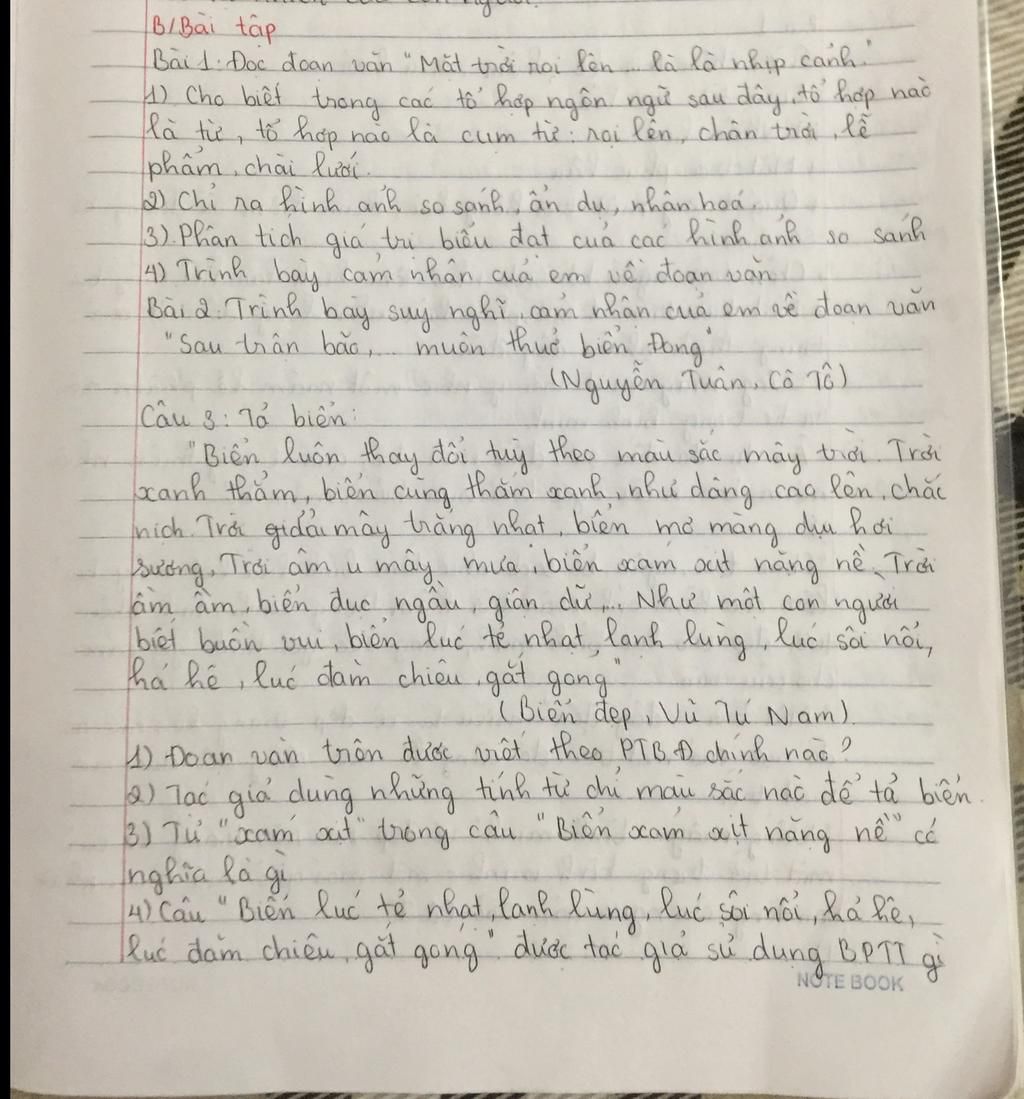 B/Bài tập
Bài 1: Đọc đoạn văn "Mặt trời rọi lên... là là nhịp cánh."
1) Cho biết trong các tổ hợp ngôn ngữ sau đây, tổ hợp nào
là từ, tổ hợp nào là cụm từ: rọi lên, chân trời, lễ
phẩm, chài lưới.
2) Chỉ ra hình ảnh so sánh, ẩn dụ, nhân hoá.
3). Phân tích giá trị biểu đạt của các hình ảnh so sánh
4) Trình bày cảm nhận của em về đoạn văn
Bài 2. Trình bày suy nghĩ, cảm nhận của em về đoạn văn
"Sau trận bão,... muôn thuở biển Đông"
(Nguyễn Tuân, Cô Tô)
Câu 3: Tả biển:
"Biển luôn thay đổi tuỳ theo màu sắc mây trời. Trời
xanh thẳm, biển cũng thẳm xanh, như dâng cao lên, chắc
nịch. Trời dải mây trắng nhạt, biển mơ màng dịu hơi
sương, Trời âm u mây mưa, biển xám xịt nặng nề. Trời
ầm ầm, biển đục ngầu, giận dữ,... Như một con người
biết buồn vui, biển lúc tẻ nhạt, lạnh lùng, lúc sôi nổi,
hả hê, lúc đăm chiêu, gắt gỏng"
(Biển đẹp, Vũ Tú Nam).
1) Đoạn văn trên được viết theo PTBĐ chính nào?
2) Tác giả dùng những tính từ chỉ màu sắc nào để tả biển.
3) Từ "xám xịt" trong câu "Biển xám xịt nặng nề" có
nghĩa là gì
4) Câu "Biển lúc tẻ nhạt, lạnh lùng, lúc sôi nổi, hả hê,
lúc đăm chiêu, gắt gỏng" được tác giả sử dụng BPTT gì
NOTE BOOK